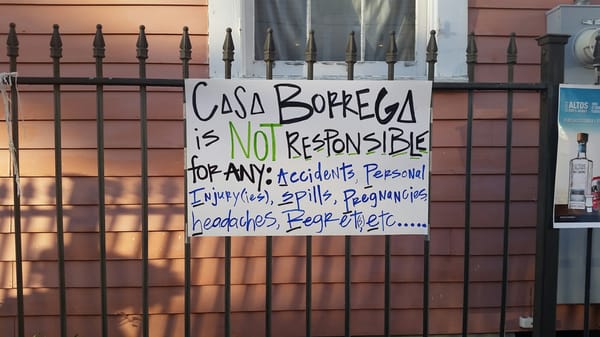 CASA BORREGA
is NOT RESPONSIBLE
for ANY: Accidents, Personal
Injury(ies), Spills, Pregnancies,
headaches, Regret(s), etc.....
ALTOS